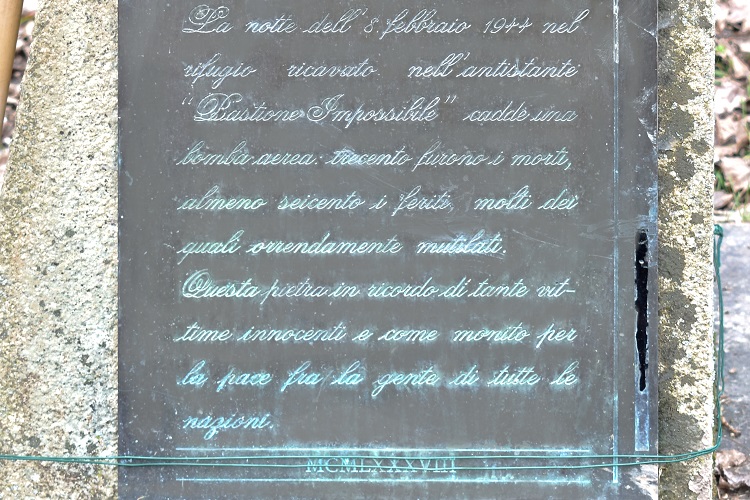 La notte dell'8 febbraio 1944 nel
rifugio ricavato nell'antistante
"Bastione Impossibile" cadde una
bomba aerea: trecento furono i morti,
almeno seicento i feriti, molti dei
quali orrendamente mutilati.
Questa pietra in ricordo di tante vit-
time innocenti e come monito per
la pace fra la gente di tutte le
nazioni.
MCMLXXXVIII